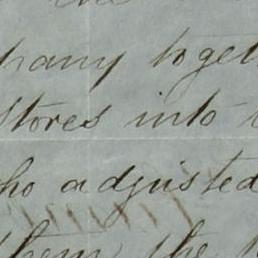 pany toget
stores into
ho adjusted
them the